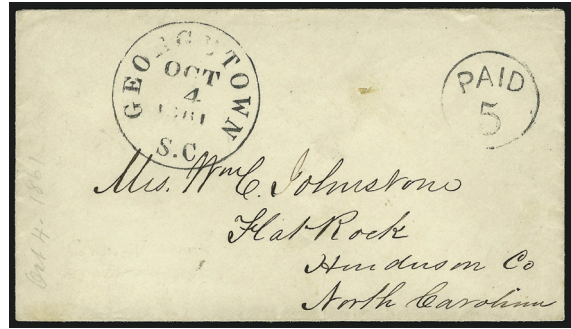 GEORGETOWN
OCT
4
1861
S.C.
PAID
5
Mrs. Wm C. Johnstone
Flat Rock
Henderson Co
North Carolina
Oct 4. 1861